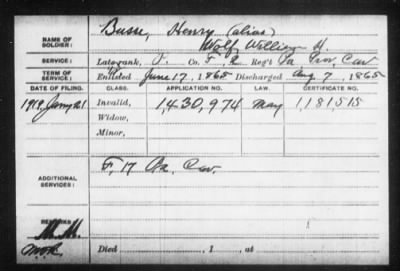 NAME OF SOLDIER: Busse, Henry (alias)
Wolf, William H.
SERVICE: Late rank, Co. F, 2 Reg't Pa Prov, Cav
TERM OF SERVICE: Enlisted June 17, 1865 Discharged Aug. 7, 1865
DATE OF FILING. CLASS. APPLICATION NO. LAW. CERTIFICATE NO.
Invalid, 1,430,974 May 1,181,515
Widow,
Minor,
ADDITIONAL SERVICES: F, 17 Pa. Cav.
REMARKS:
Died , 1 , at